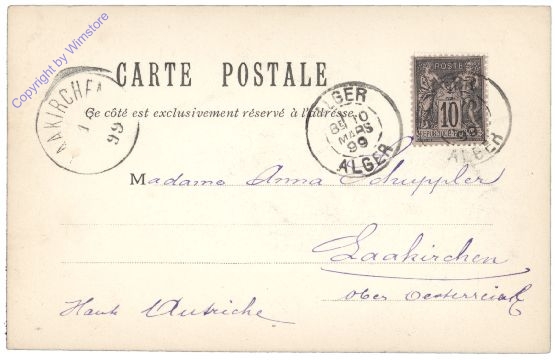 Copyright by Wimstore
CARTE POSTALE
Ce côté est exclusivement réservé à l'adresse
LAAKIRCHEN
99
ALGER
10
MARS
99
ALGER
POSTE
10
ALGER
Madame Anna Schuppler
Laakirchen
Ober Oesterreich
Haute Autriche